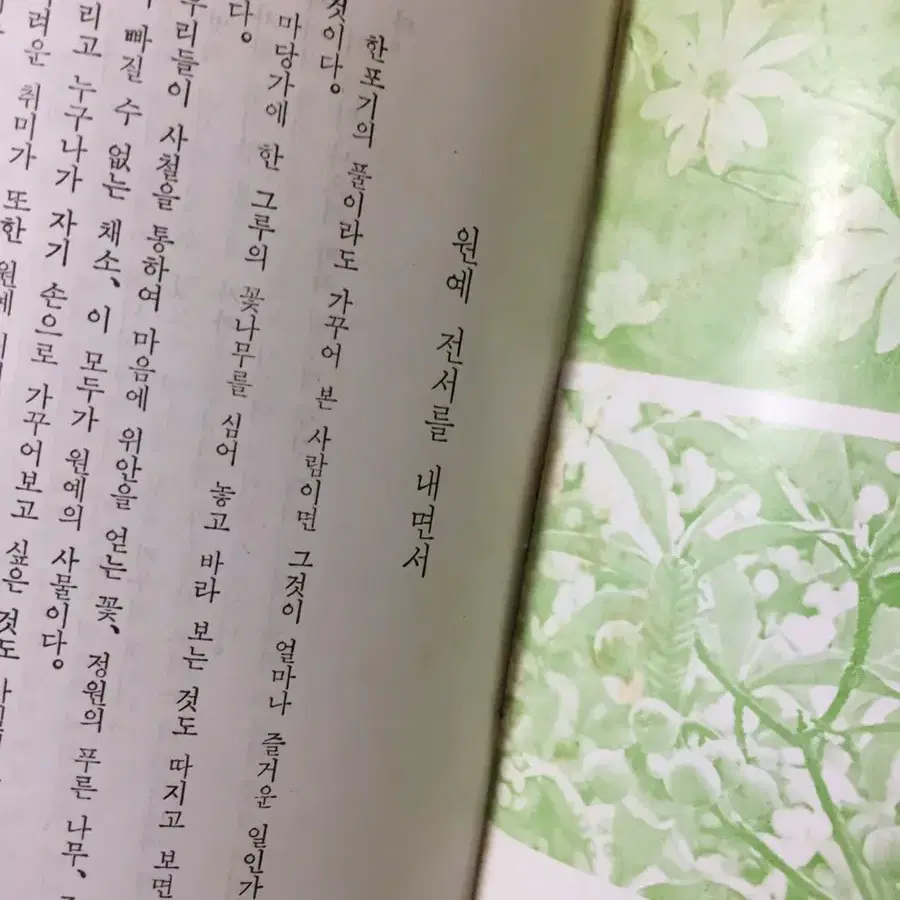 원예 전서를 내면서
한포기의 풀이라도 가꾸어 본 사람이면 그것이 얼마나 즐거운 일인가
것이다。
마당가에 한 그루의 꽃나무를 심어 놓고 바라 보는 것도 따지고 보면
다。
우리들이 사철을 통하여 마음에 위안을 얻는 꽃、 정원의 푸른 나무、
빠질 수 없는 채소、 이 모두가 원예의 사물이다。
그리고 누구나가 자기 손으로 가꾸어보고 싶은 것도
려운 취미가 또한 원예